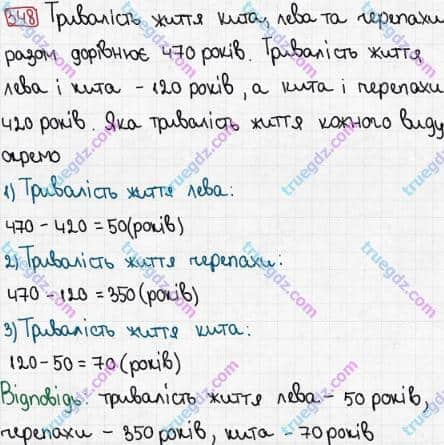 348 Тривалість життя кита, лева та черепахи
разом дорівнює 470 років. Тривалість життя
лева і кита - 120 років, а кита і черепахи
420 років. Яка тривалість життя кожного виду
окремо
1) Тривалість життя лева:
470 - 420 = 50 (років)
2) Тривалість життя черепахи:
470 - 120 = 350 (років)
3) Тривалість життя кита:
120 - 50 = 70 (років)
Відповідь: тривалість життя лева - 50 років,
черепахи - 350 років, кита - 70 років
truegdz.com